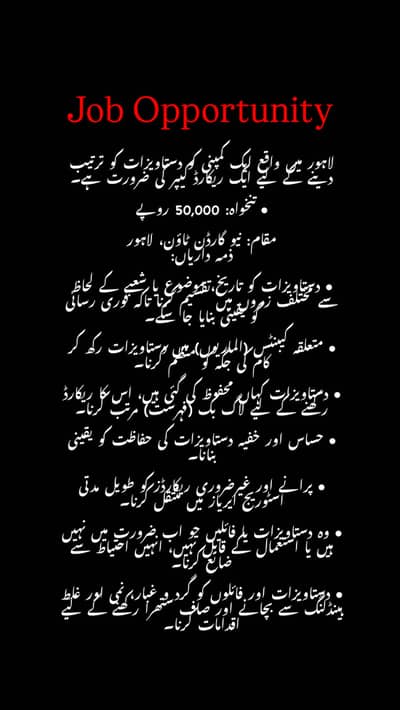 Job Opportunity
لاہور میں واقع ایک کمپنی کو دستاویزات کو ترتیب
دینے کے لیے ایک ریکارڈ کیپر کی ضرورت ہے۔
• تنخواہ: 50,000 روپے
مقام: نیو گارڈن ٹاؤن، لاہور
ذمہ داریاں:
• دستاویزات کو تاریخ، موضوع یا شعبے کے لحاظ
سے مختلف زمروں میں تقسیم کرنا تاکہ فوری رسائی
کو یقینی بنایا جا سکے۔
• متعلقہ کیبنٹس (الماریوں) میں دستاویزات رکھ کر
کام کی جگہ کو منظم کرنا۔
• دستاویزات کہاں محفوظ کی گئی ہیں، اس کا ریکارڈ
رکھنے کے لیے لاگ بک (فہرست) مرتب کرنا۔
• حساس اور خفیہ دستاویزات کی حفاظت کو یقینی
بنانا۔
• پرانے اور غیر ضروری ریکارڈز کو طویل مدتی
اسٹوریج ایریاز میں منتقل کرنا۔
• وہ دستاویزات یا فائلیں جو اب ضرورت میں نہیں
ہیں یا استعمال کے قابل نہیں، انہیں احتیاط سے
ضائع کرنا۔
• دستاویزات اور فائلوں کو گرد و غبار، نمی اور غلط
ہینڈلنگ سے بچانے اور صاف ستھرا رکھنے کے لیے
اقدامات کرنا۔